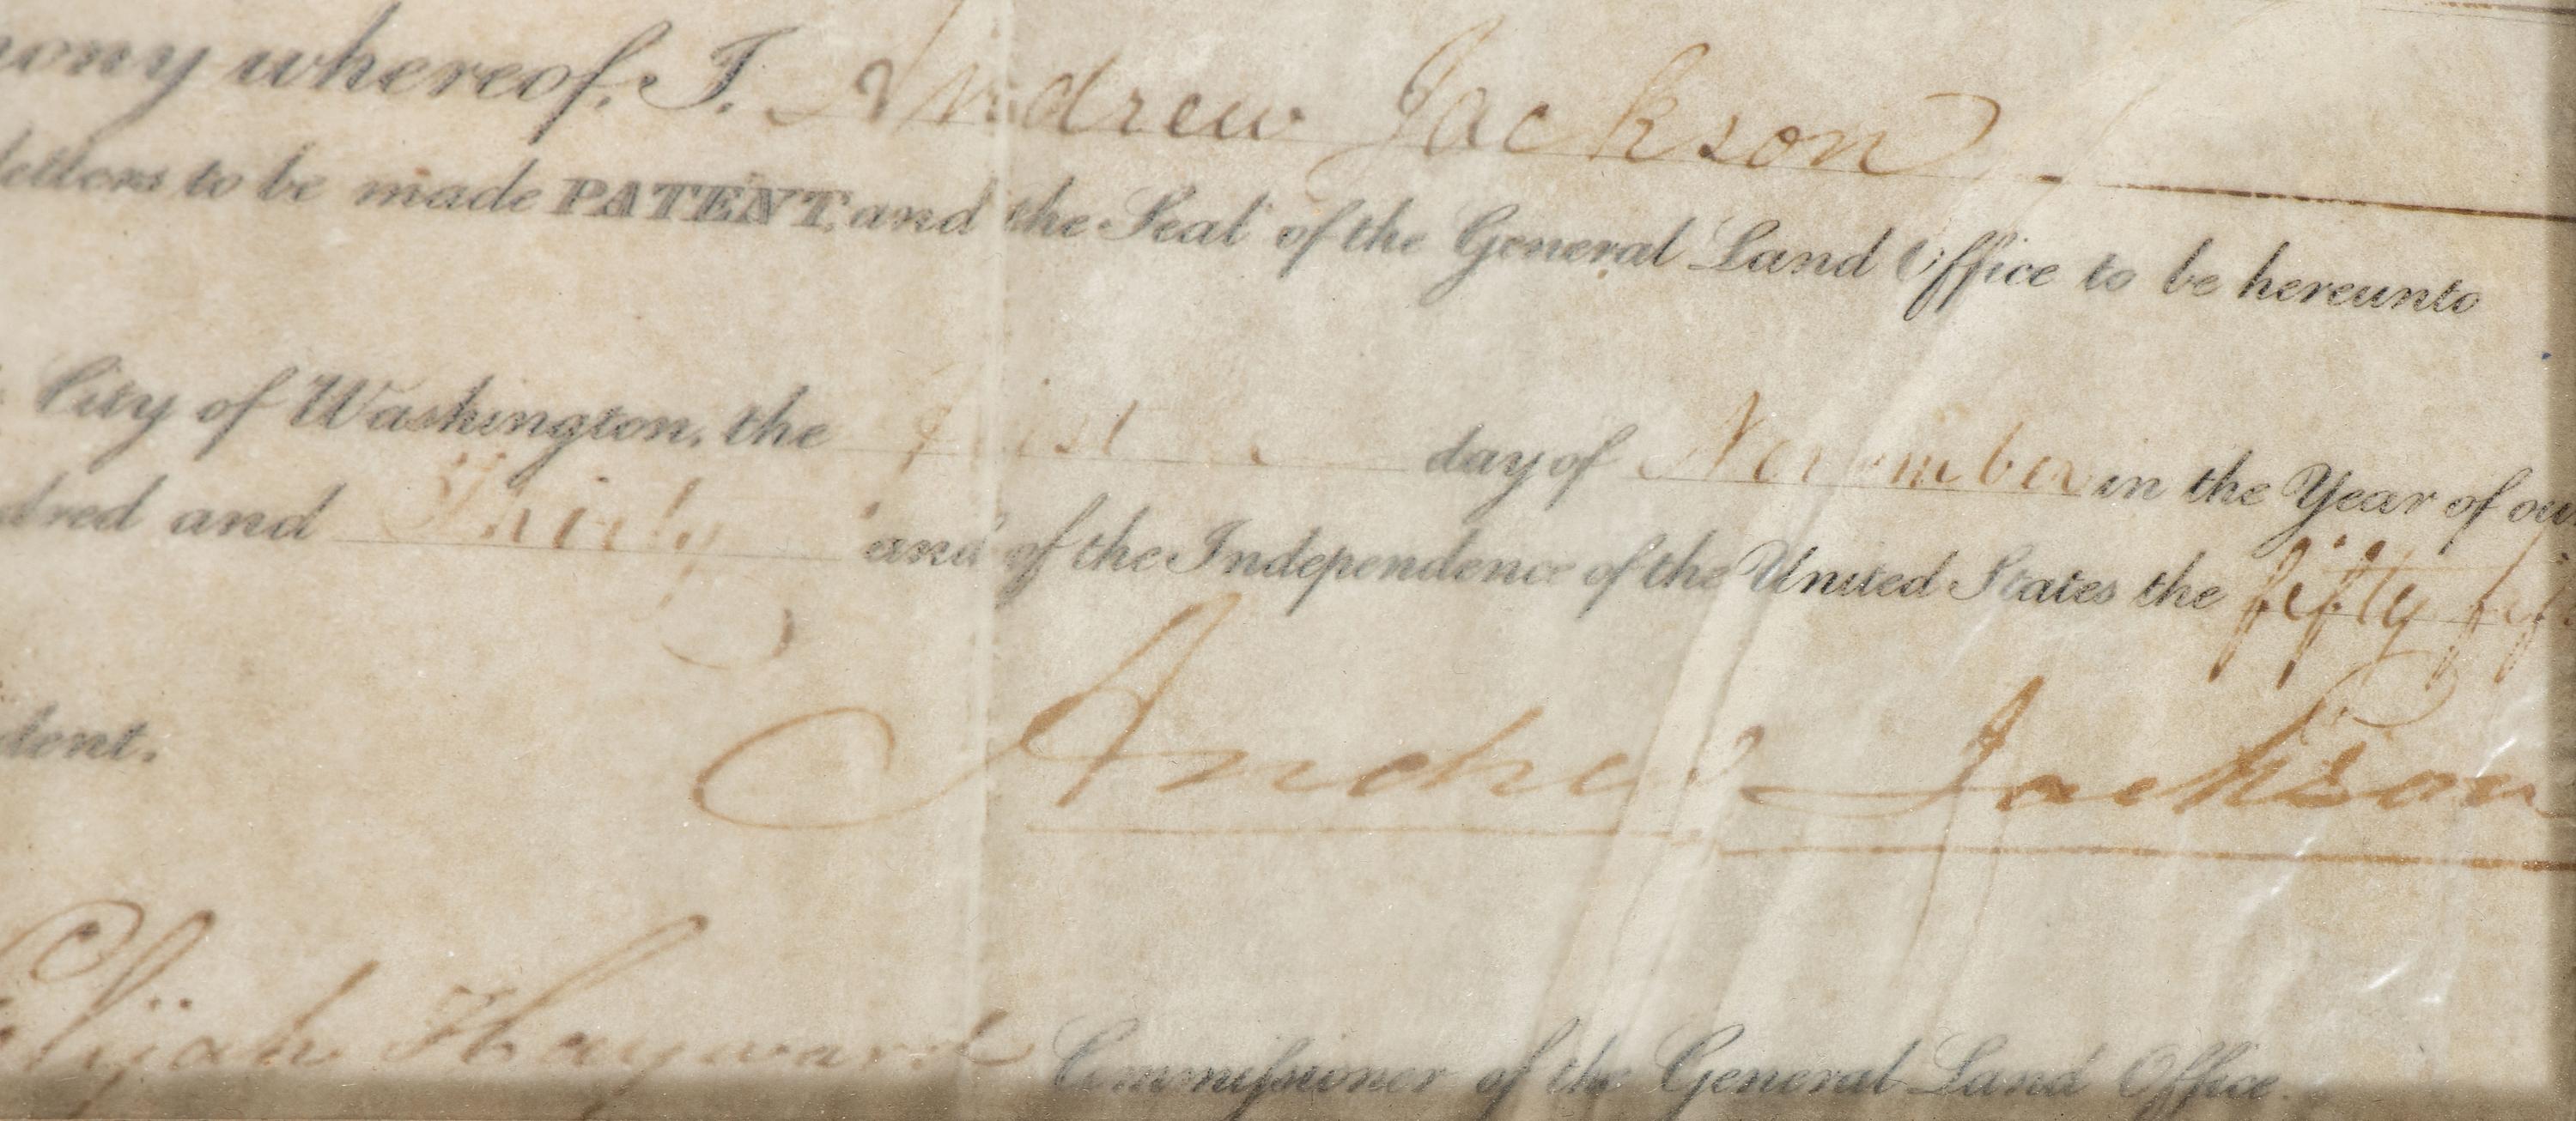 mony whereof, I, Andrew Jackson
letters to be made PATENT, and the Seal of the General Land Office to be hereunto
City of Washington, the first day of November in the Year of our
dred and Thirty and of the Independence of the United States the fifty fif
dent.
Andrew Jackson
Elijah Hayward Commissioner of the General Land Office.